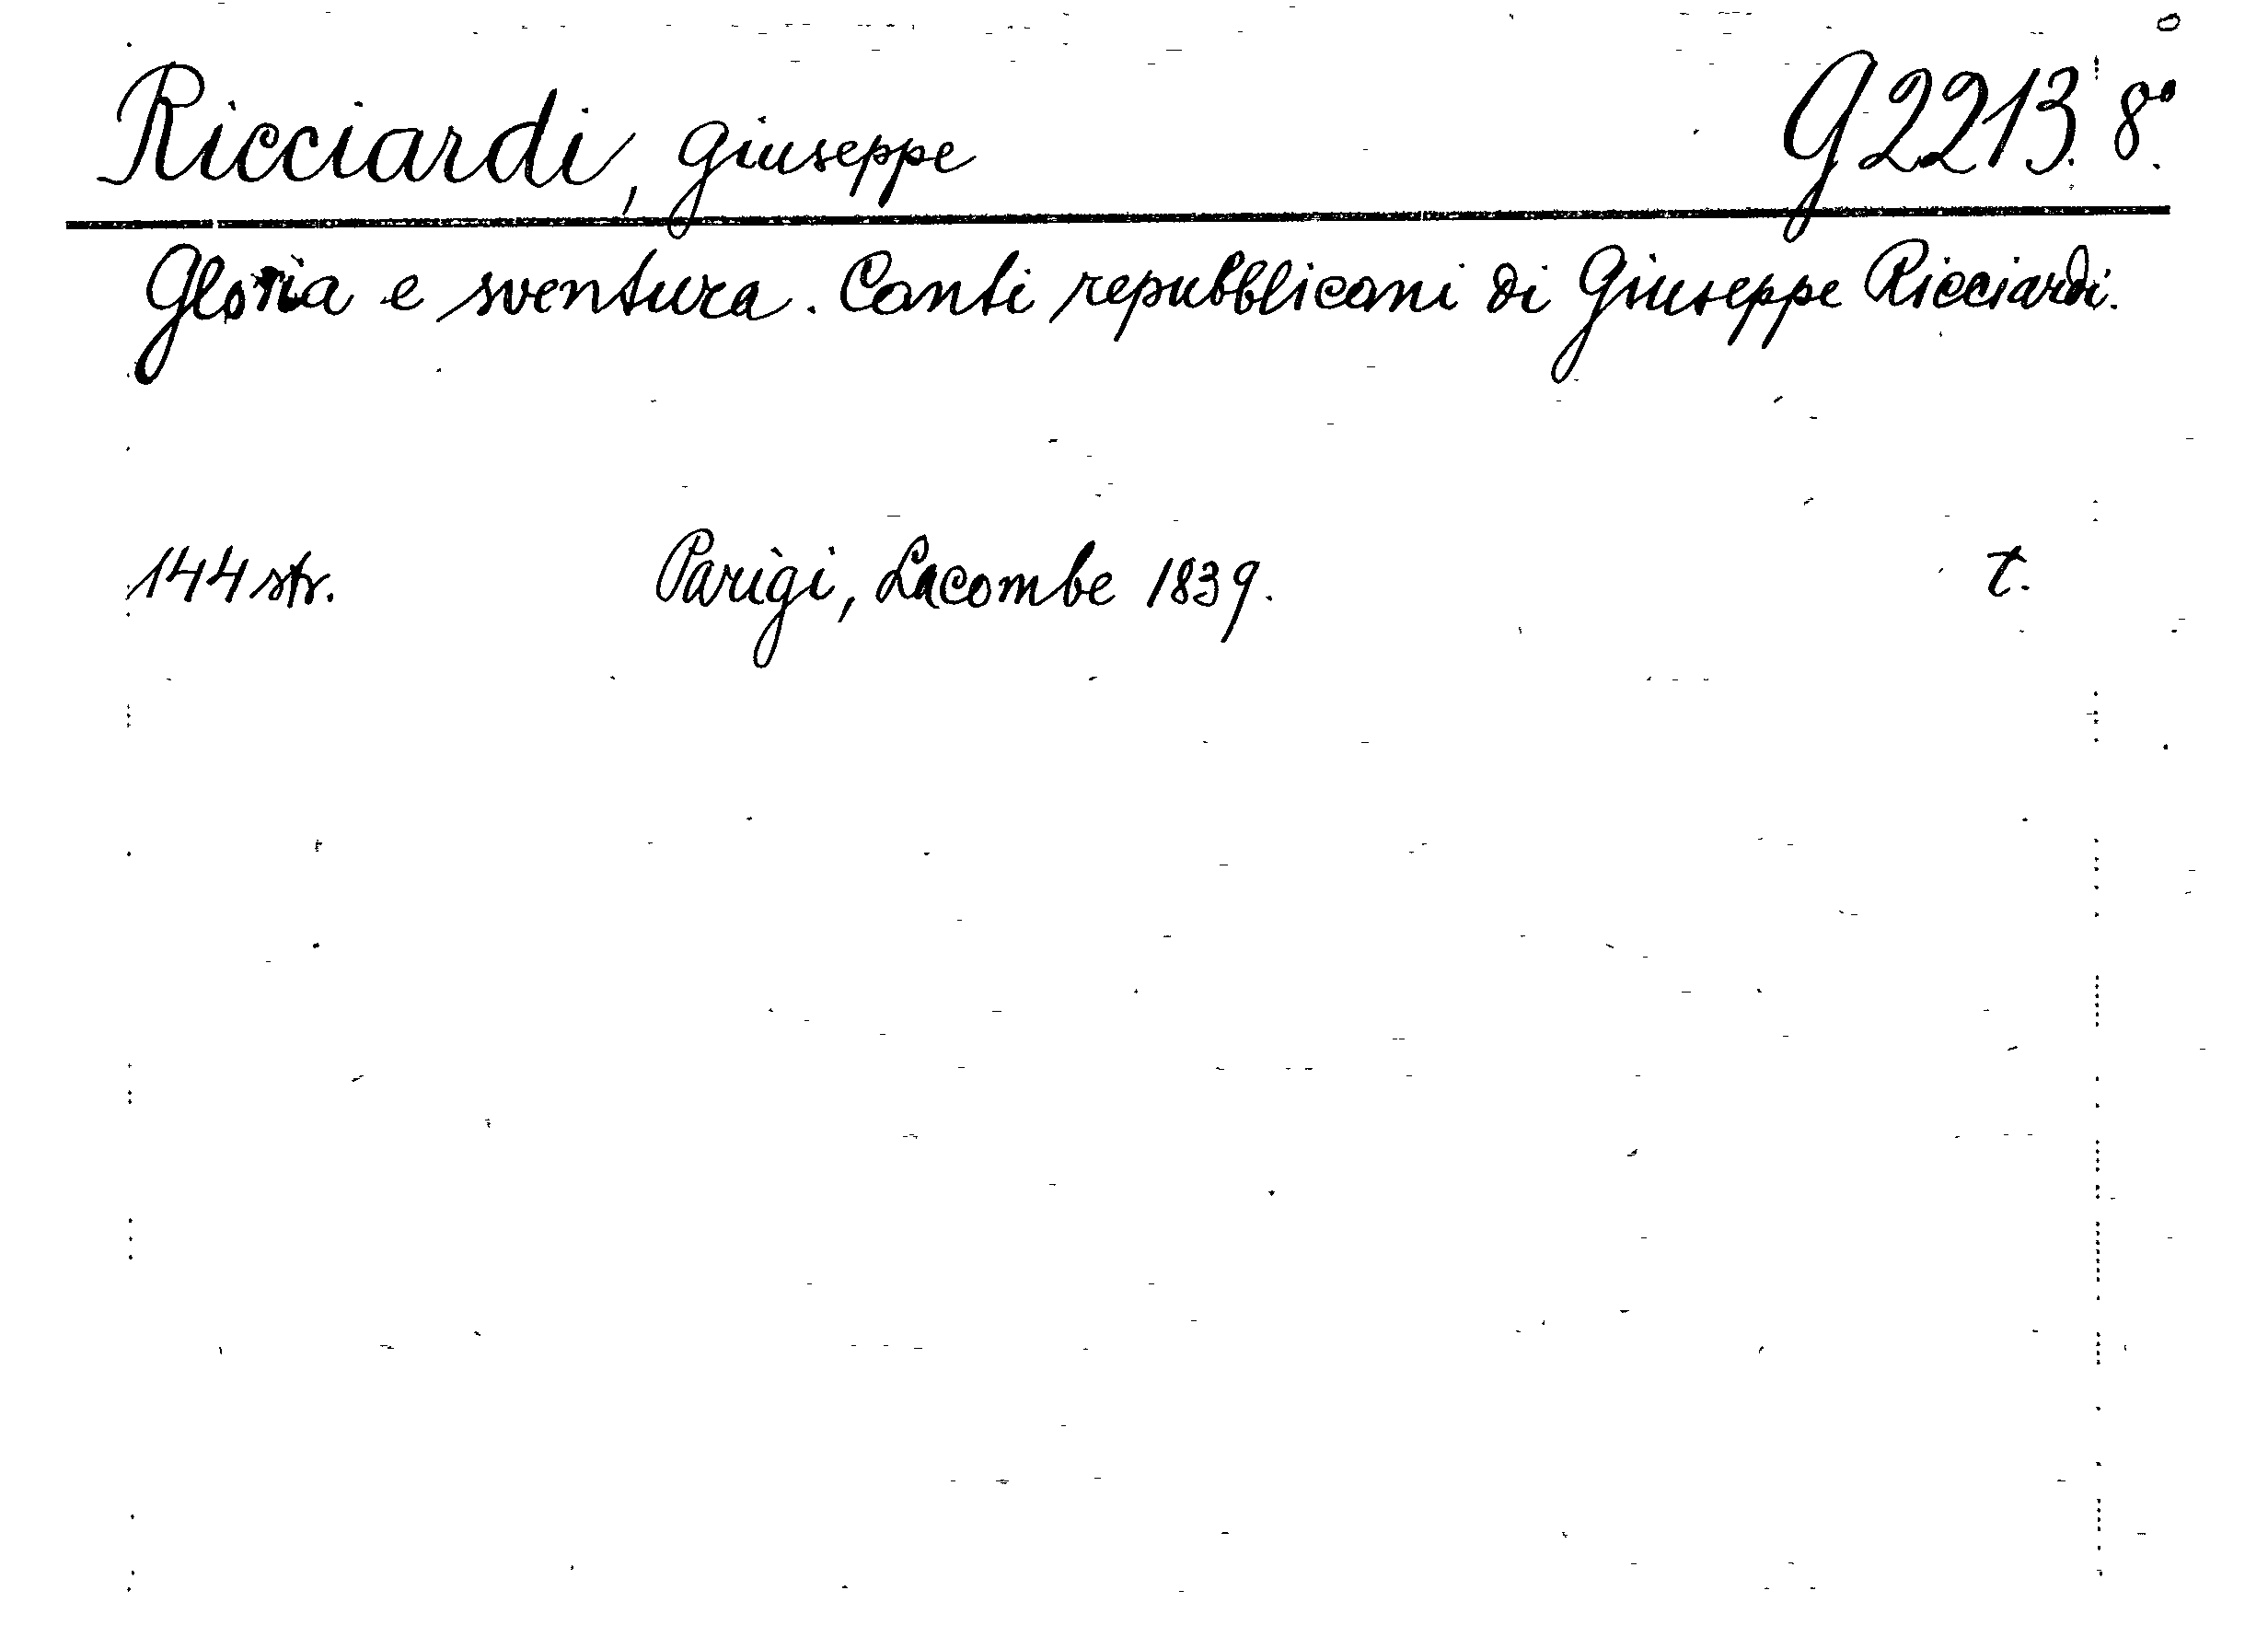 Ricciardi, Giuseppe G 2213. 8°.
Gloria e sventura. Canti repubblicani di Giuseppe Ricciardi.
144 str. Parigi, Lacombe 1839. t.